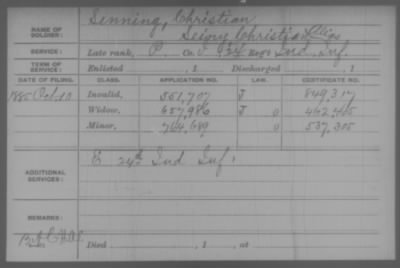 Senning, Christian
NAME OF SOLDIER: Seigy Christian Alias
SERVICE: Late rank, P Co. , 34 Reg't Ind. Inf.
TERM OF SERVICE: Enlisted , 1 Discharged , 1
DATE OF FILING. CLASS. APPLICATION NO. LAW. CERTIFICATE NO.
1885 Oct. 10 Invalid, 551,707 J 849,317
Widow, 657,986 J 0 462,405
Minor, 764,689 0 537,305
ADDITIONAL SERVICES: E 24th Ind Inf.
REMARKS:
Died , 1 , at